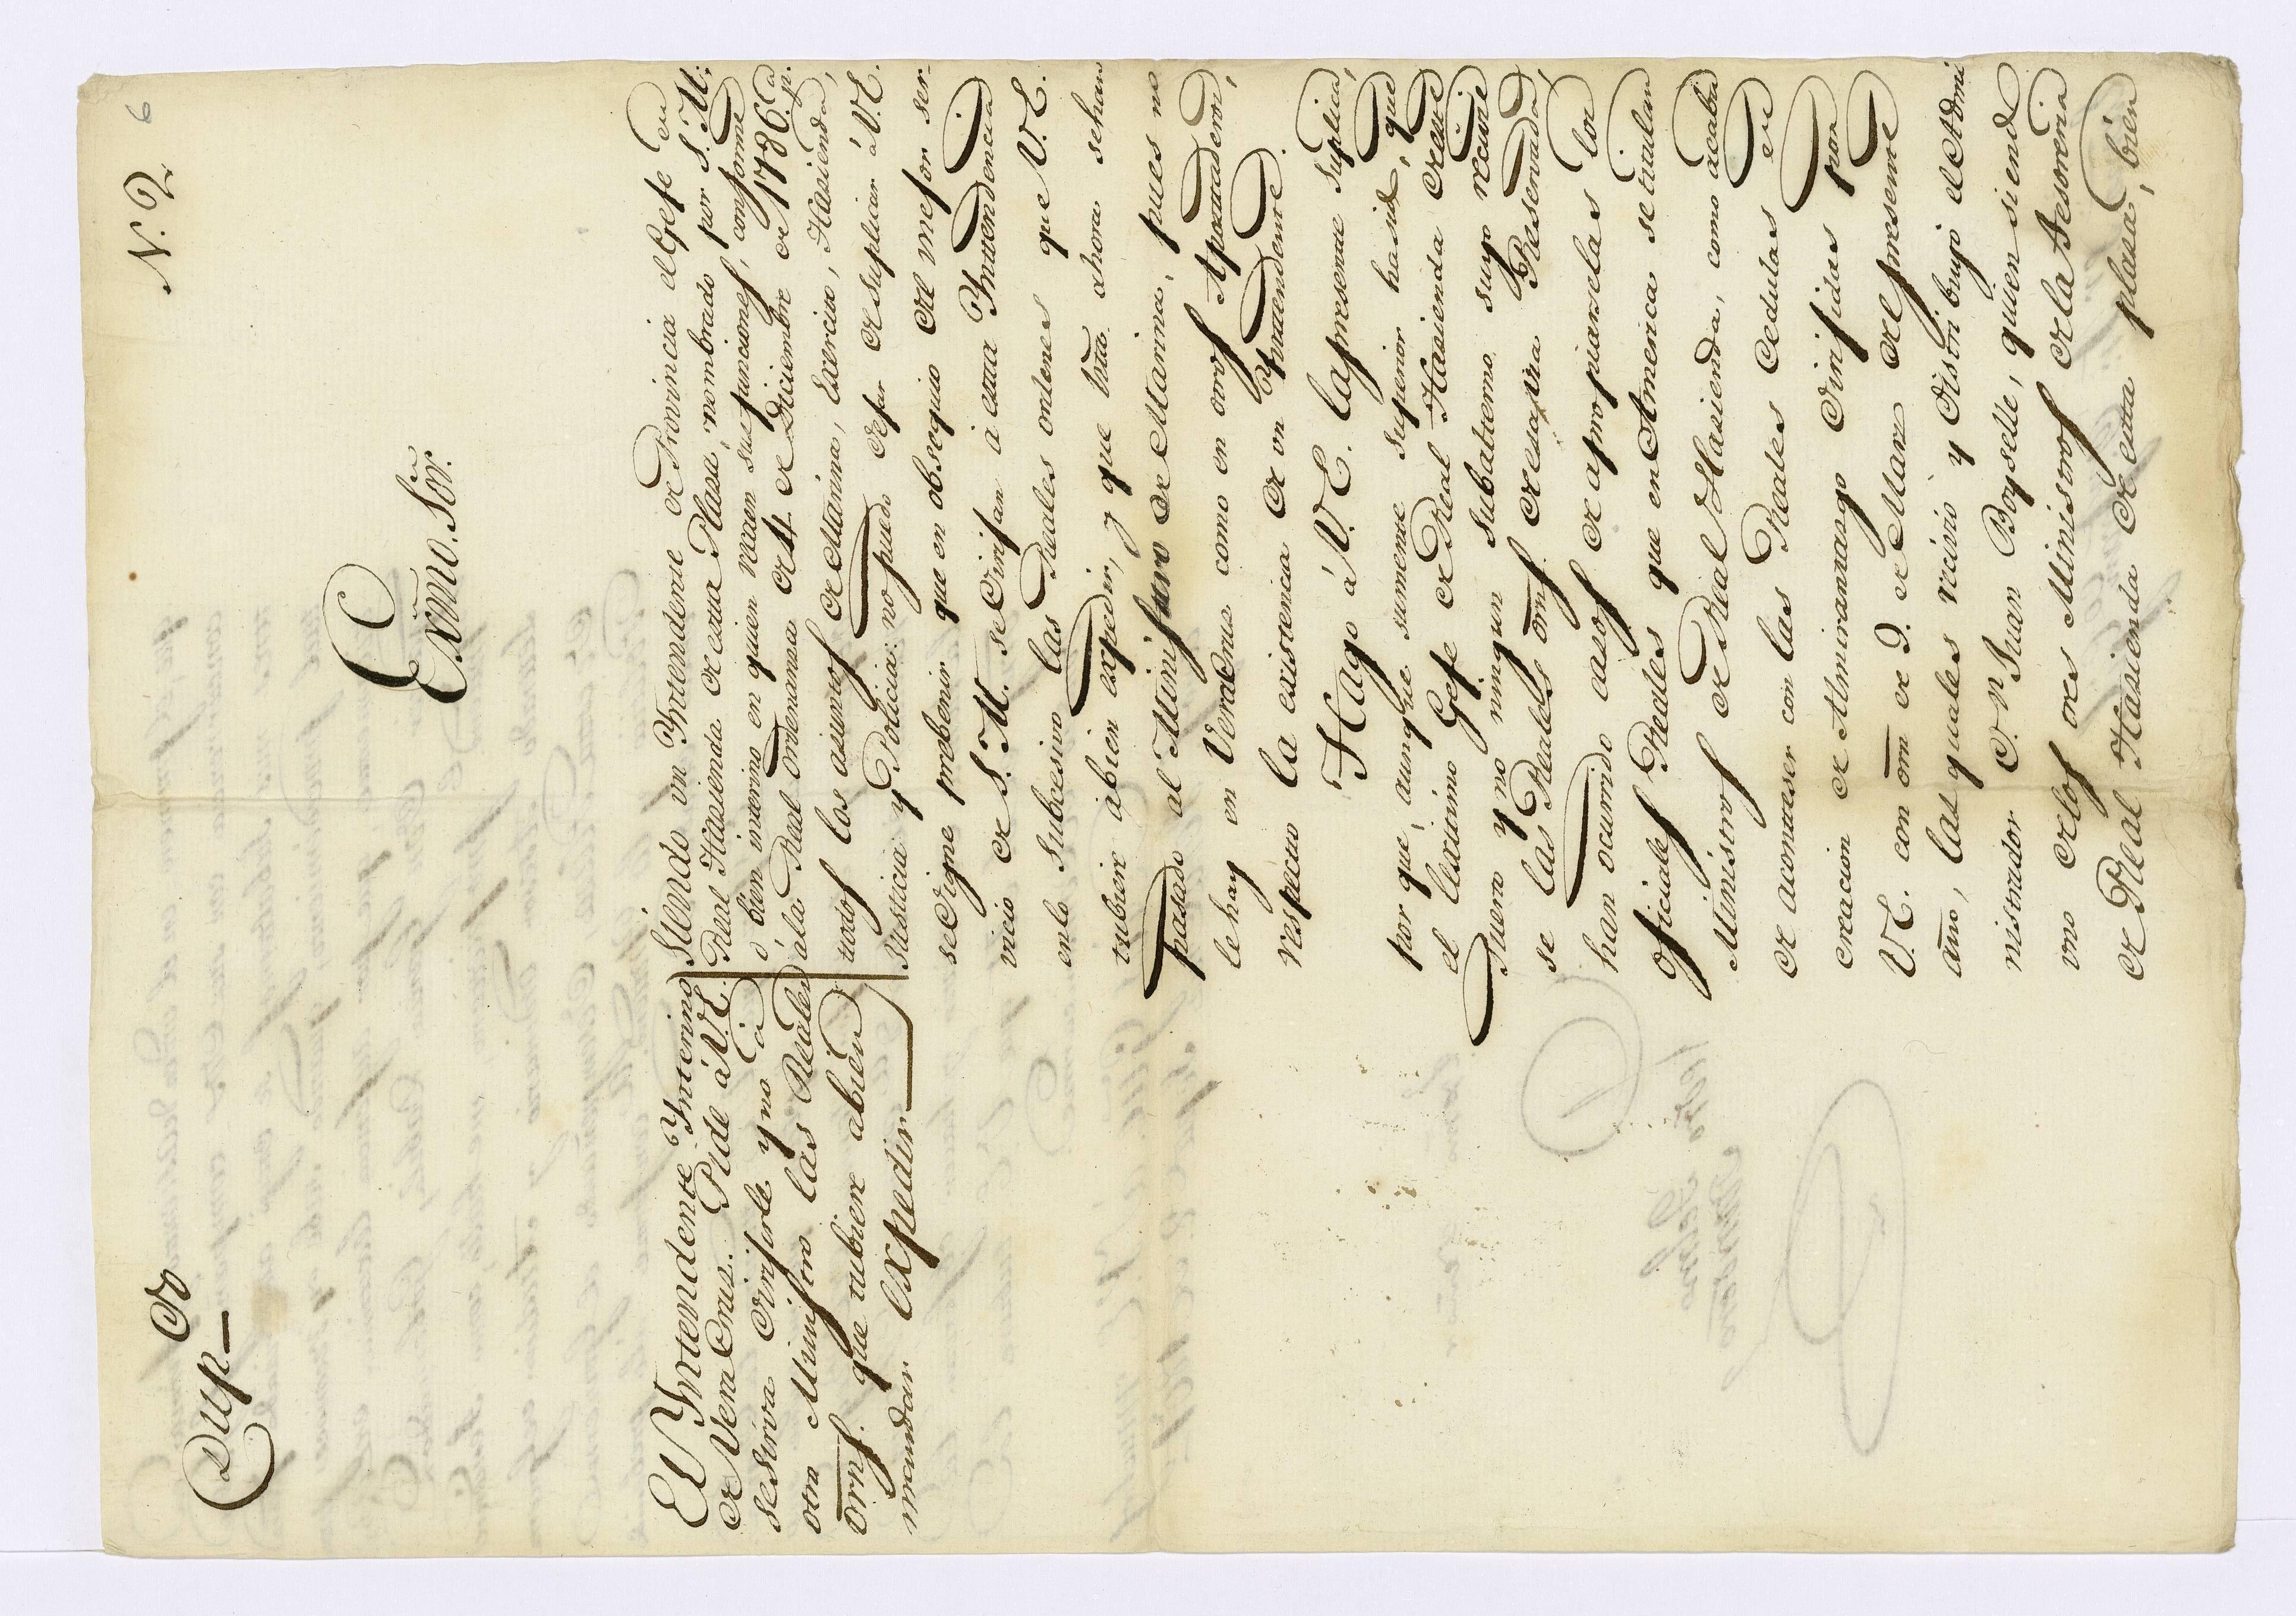 Dup.do
N. 2
6
Exmo. Sor.
El Yntendente Ynterino
de Vera Cruz. Pide à V.E.
se sirva dirijirle y no à
otro Ministro las Reales
orns. que tubiere abien
mandar expedir
Siendo un Yntendente de Provincia el Gefe de
Real Hazienda de esta Plaza, nombrado por S. M.
o bien interino en quien recaen sus funciones, conforme
à la Real Ordenanza de 4. de Diciembre de 1786. pa.
todos los asuntos de Marina, Exercito, Hazienda,
Justicia y Policia: no puedo dejar de suplicar à V.E.
se digne prebenir que en obsequio del mejor ser-
vicio de S. M. se dirijan à esta Yntendencia
en lo subcesivo las Reales ordenes que V. E.
tubiere àbien expedir, y que hta. ahora se han
pasado al Ministro de Marina, pues no
le hay en Vera Cruz como en otros Apostaderos,
respecto la existencia de un Yntendente.
Hago à V. E. la presente suplica,
por que, aunque sumente superior ha sido, que
al lexitimo Gefe de Real Hazienda
fuera y no ningun subalterno suyo recivie
se las Reales orns. de esa Via Reservada,
han ocurrido casos de apropiarselas los
oficiales Reales que en America se titulan
Ministros de Real Hazienda, como acaba
de acontaser con las Reales Cedulas de
creacion de Almirantazgo dirijidas por
V. E. con orn de 9. de Marzo del presente
año, las quales recivió y distribuyó el Admi
nistrador Dn. Juan Boyselle, quien siendo
uno delos tres Ministros de la tesoreria
de Real Hazienda de esta plaza, bien